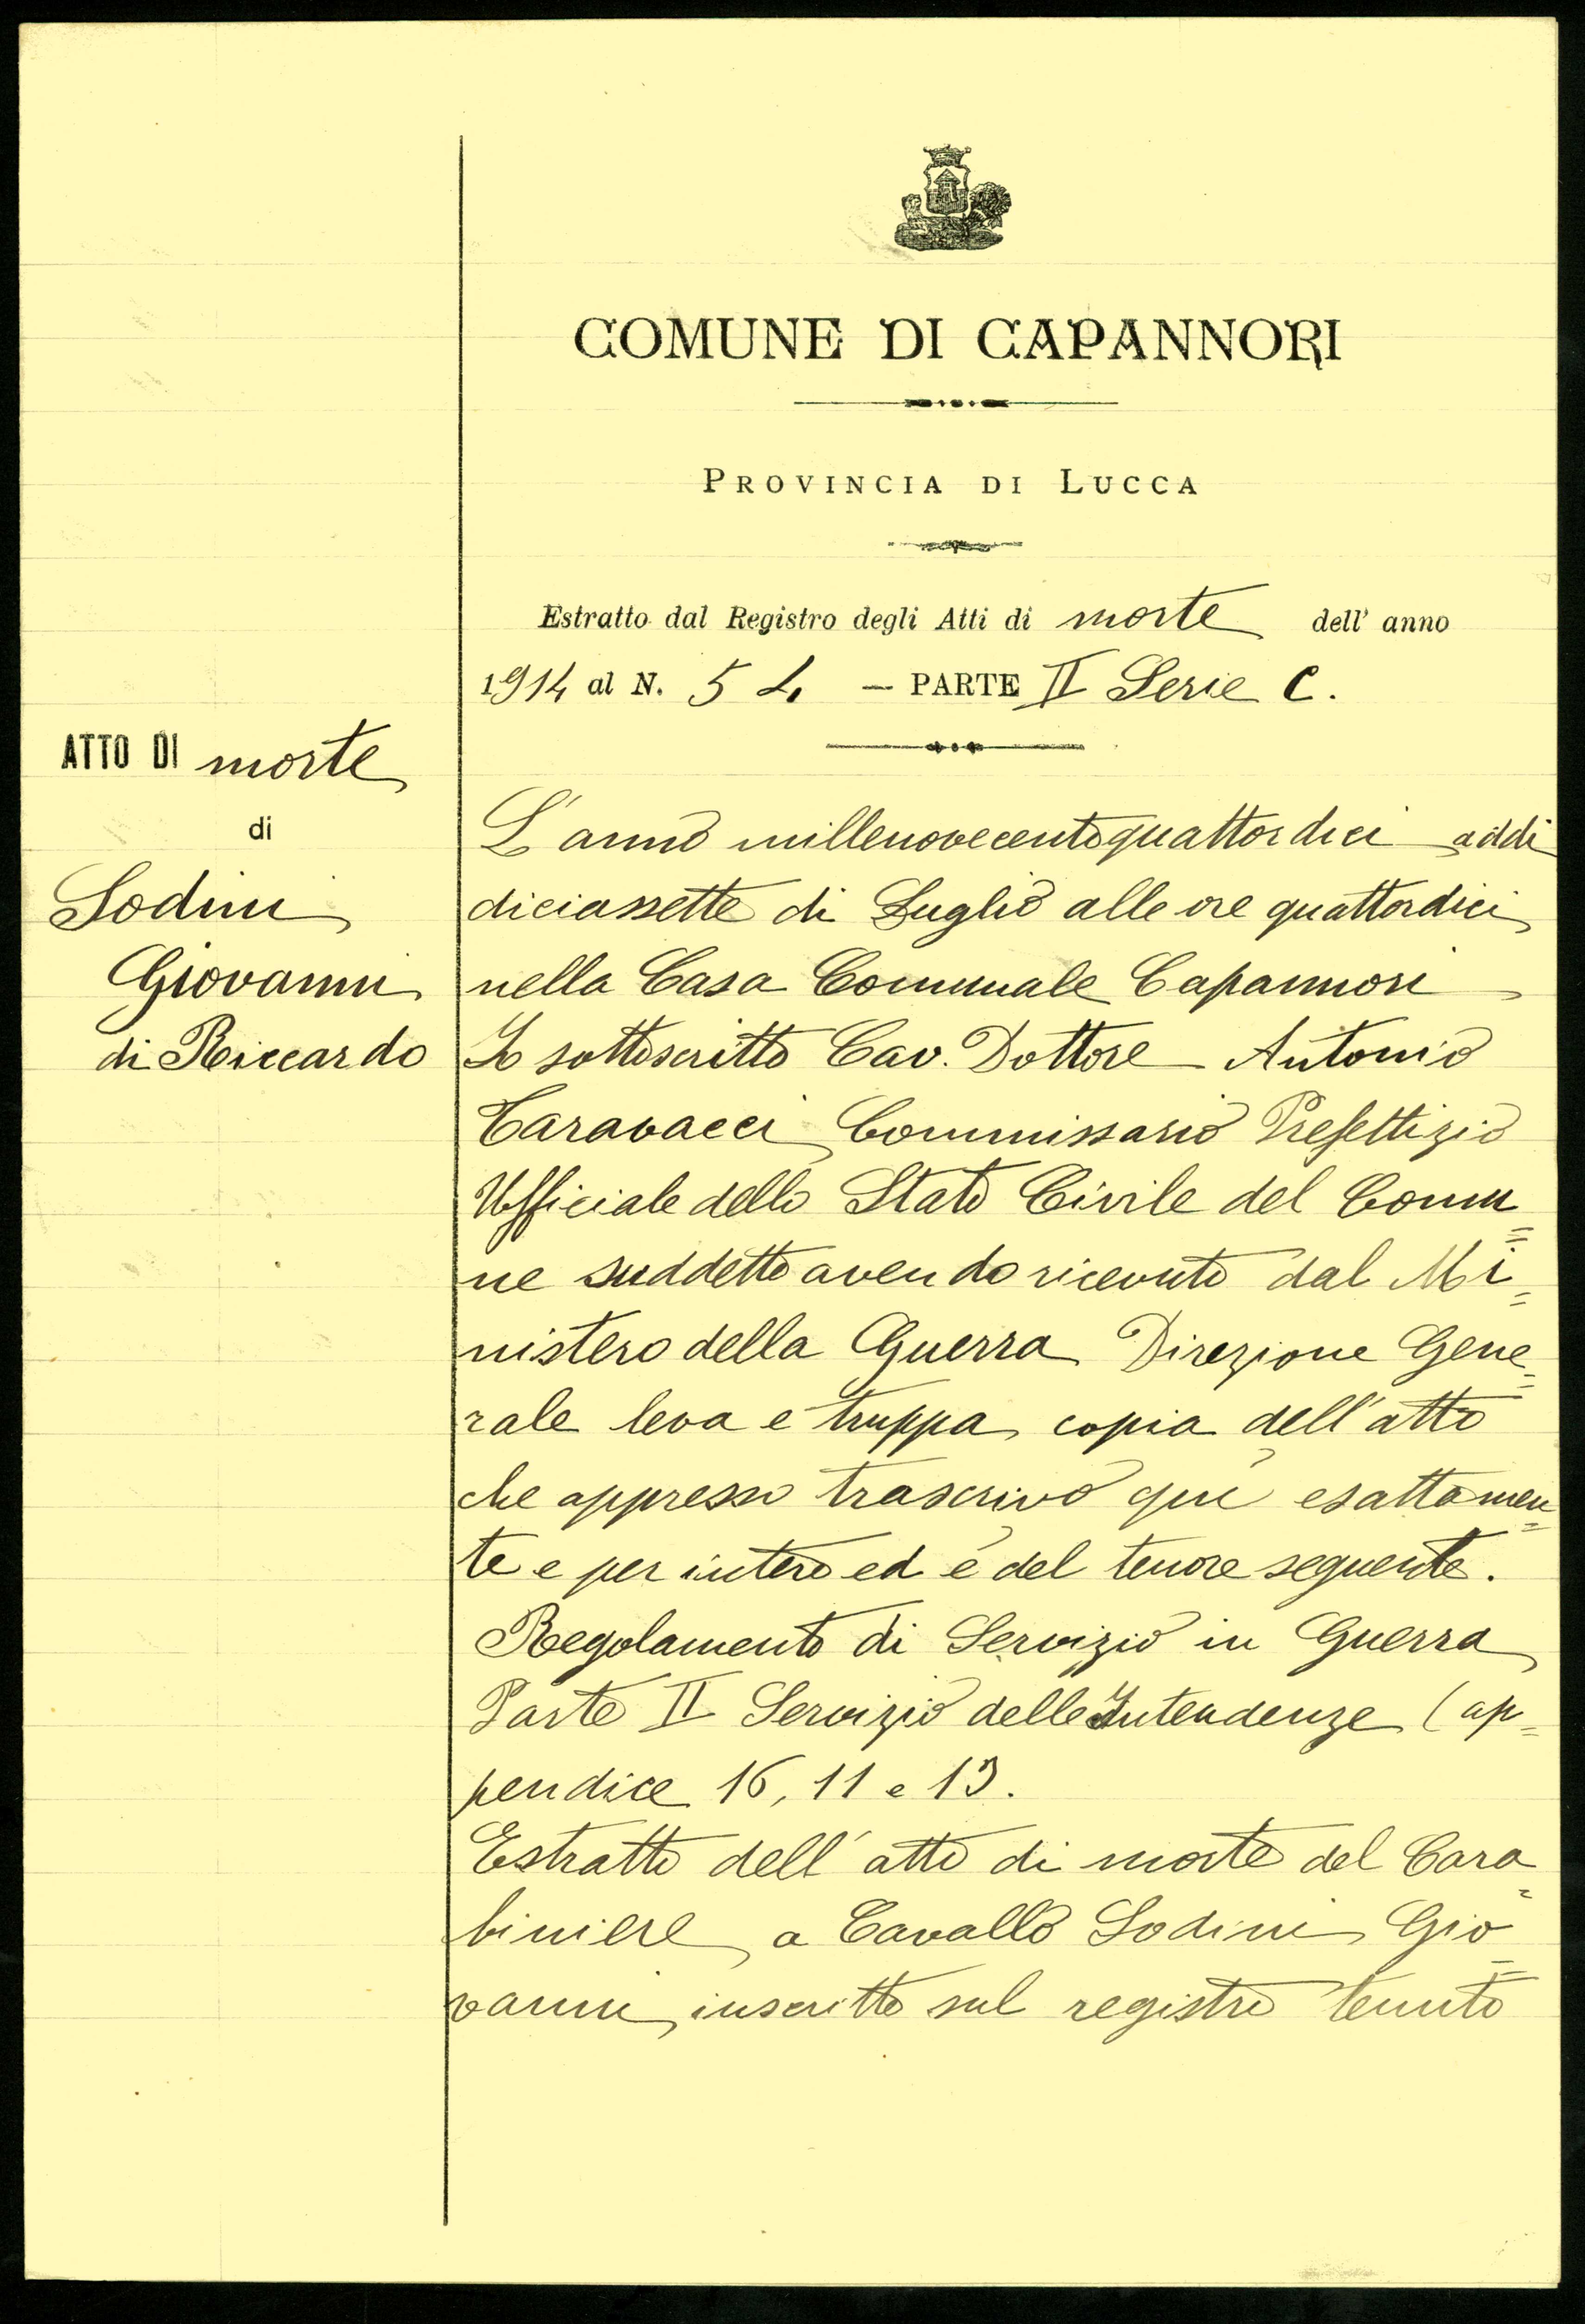 COMUNE DI CAPANNORI
PROVINCIA DI LUCCA
Estratto dal Registro degli Atti di morte dell' anno
1914 al N. 54 — PARTE II Serie C.
ATTO DI morte
di
Lodini
Giovanni
di Riccardo
L'anno millenovecentoquattordici addi
diciassette di Luglio alle ore quattordici
nella Casa Comunale Capannori
Io sottoscritto Cav. Dottore Antonio
Caravacci Commissario Prefettizio
Ufficiale dello Stato Civile del Comu=
ne suddetto avendo ricevuto dal Mi=
nistero della Guerra Direzione Gene=
rale leva e truppa copia dell'atto
che appresso trascrivo quì esattamen=
te e per intero ed è del tenore seguente.
Regolamento di Servizio in Guerra
Parte II Servizio delle Intendenze (ap=
pendice 16, 11 e 13.
Estratto dell'atto di morte del Cara=
biniere a Cavallo Lodini Gio=
vanni inscritto sul registro tenuto